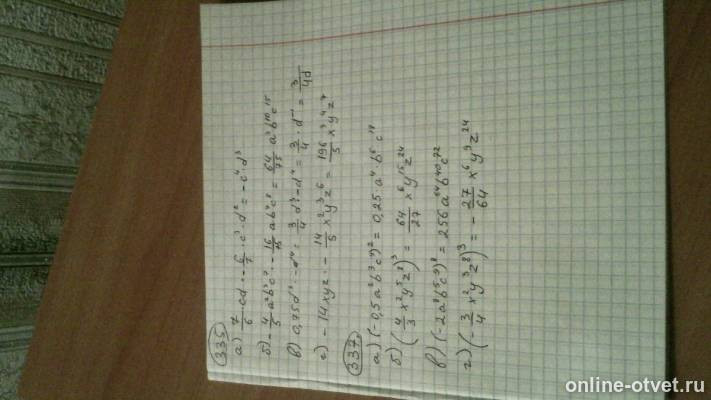 335
а) 7/6 cd · - 6/7 · c³ · d² = - c⁴ · d³
б) - 4/5 a²b³c⁷ · - 16/15 ab⁷c⁸ = 64/75 a³b¹⁰c¹⁵
в) 0,75d³ · - d⁴ = 3/4 d³ - d⁴ = 3/4 · d⁻¹ = 3/4d
г) - 14xyz · - 14/5 x²y³z⁶ = 196/5 x³y⁴z⁷
337
а) (- 0,5a²b³c⁹)² = 0,25 · a⁴ · b⁶ · c¹⁸
б) (4/3 x²y⁵z⁸)³ = 64/27 x⁶y¹⁵z²⁴
в) (-2a⁸b⁵c⁹)⁸ = 256a⁶⁴b⁴⁰c⁷²
г) (- 3/4 x²y³z⁸)³ = - 27/64 x⁶y⁹z²⁴
online-otvet.ru